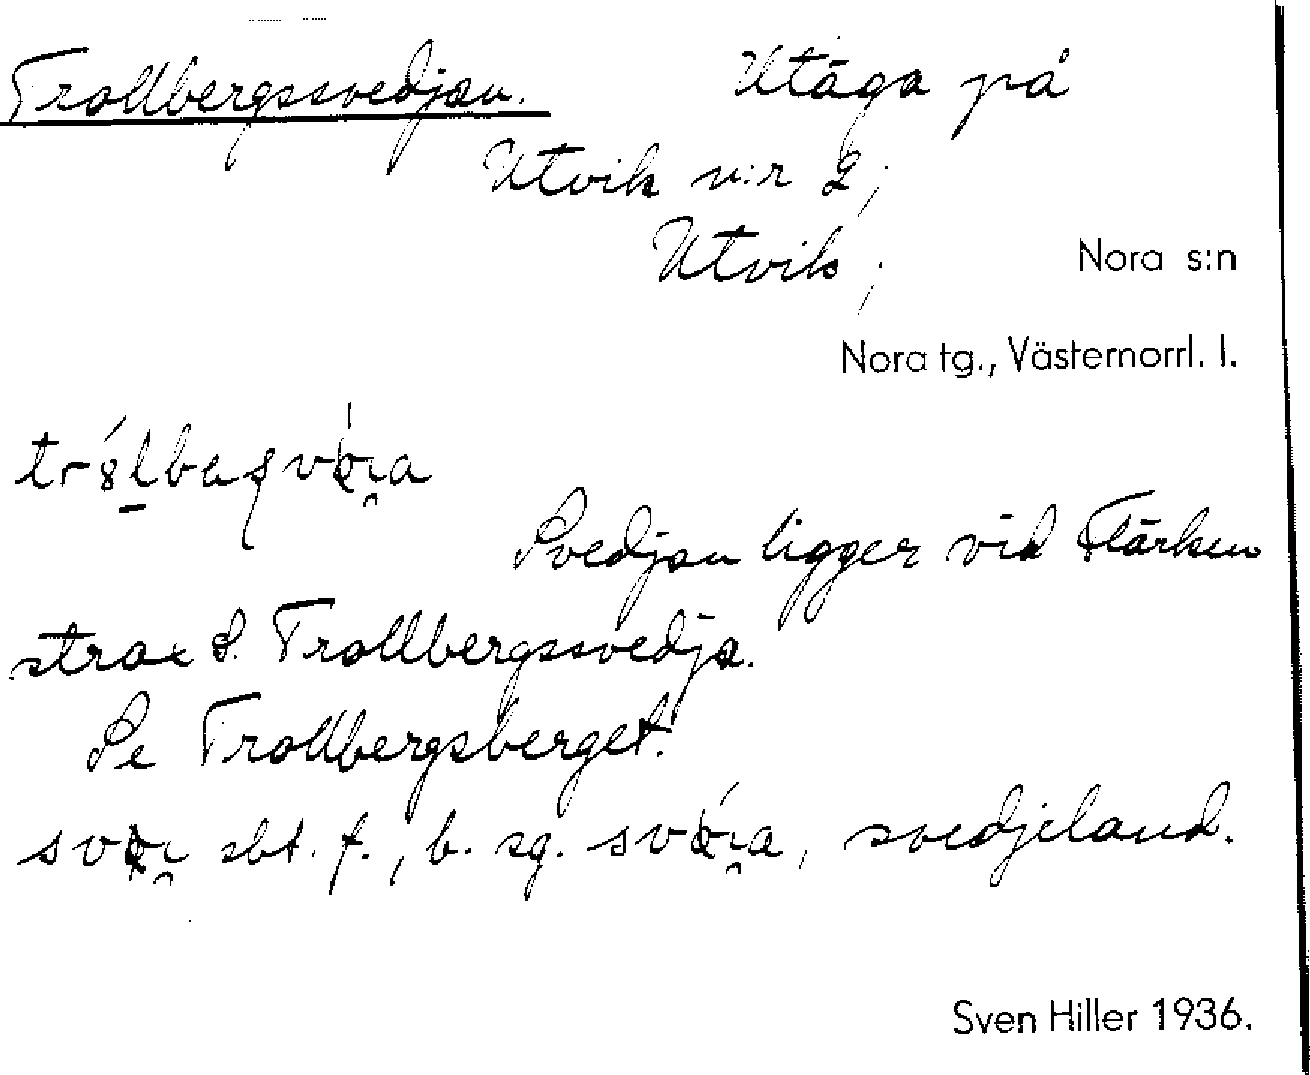 Trollbergssvedjan. Utäga på
Utvik n:r 2;
Utvik;
Nora s:n
Nora tg., Västernorrl. l.
Svedjan ligger vid Flärken
strax S. Trollbergssvedja.
Se Trollbergsberget.
sbt. f., b. sg. svedjeland.
Sven Hiller 1936.